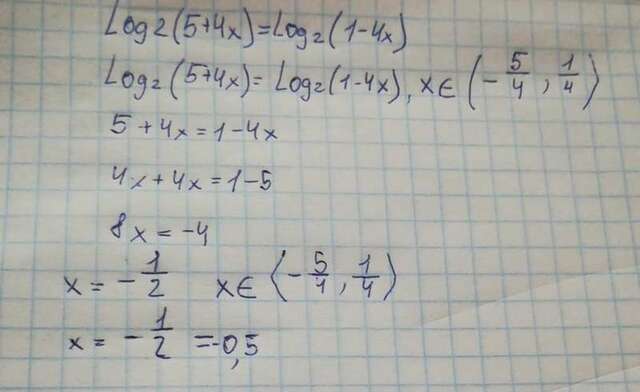 Log2(5+4x)=Log₂(1-4x)
Log₂(5+4x)=Log₂(1-4x), x∈(-5/4, 1/4)
5+4x=1-4x
4x+4x=1-5
8x=-4
x=-1/2 x∈(-5/4, 1/4)
x=-1/2=-0,5